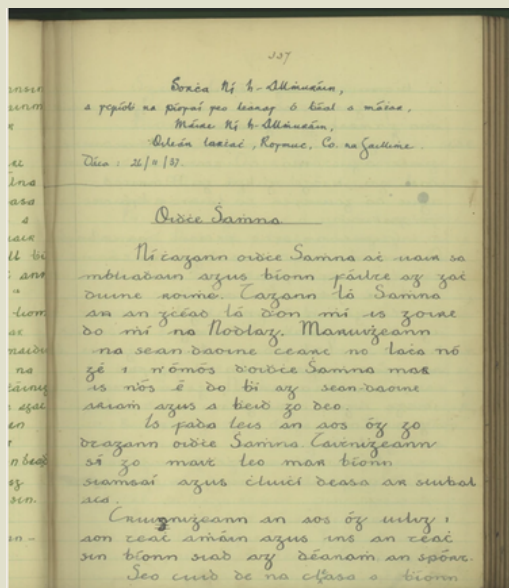 337
Sorċa Ní h-Allmuráin,
a scríobh na píosaí seo leanas ó béal a máṫar,
Máire Ní h-Allmuráin,
Oileán Iarṫaċ, Rosmuc, Co. na Gaillime.
Dáta: 26/11/37.
Oiḋċe Ṡaṁna
Ní ṫagann oiḋċe Ṡaṁna aċ uair sa
mbliaḋain agus bíonn fáilte ag gaċ
duine roiṁe. Tagann lá Saṁna
ar an gcéad lá d'on mí is goire
do mí na Nodlag. Maruiġeann
na sean daoine cearc nó laċa nó
gé i n'ómós d'oiḋċe Ṡaṁna mar
is nós é do bí ag sean-daoine
ariaṁ agus a beiḋ go deo.
Is fada leis an aos óg go
dtagann oiḋċe Ṡaṁna. Taitniġeann
sí go mait leo mar bíonn
siamsaí agus cluicí deasa ar siubal
aca.
Cruinniġeann an aos óg uilig i
aon teaċ aṁáin agus ins an teaċ
sin bíonn siad ag déanaṁ an spóirt.
Seo cuid de na cleasa a bíonn